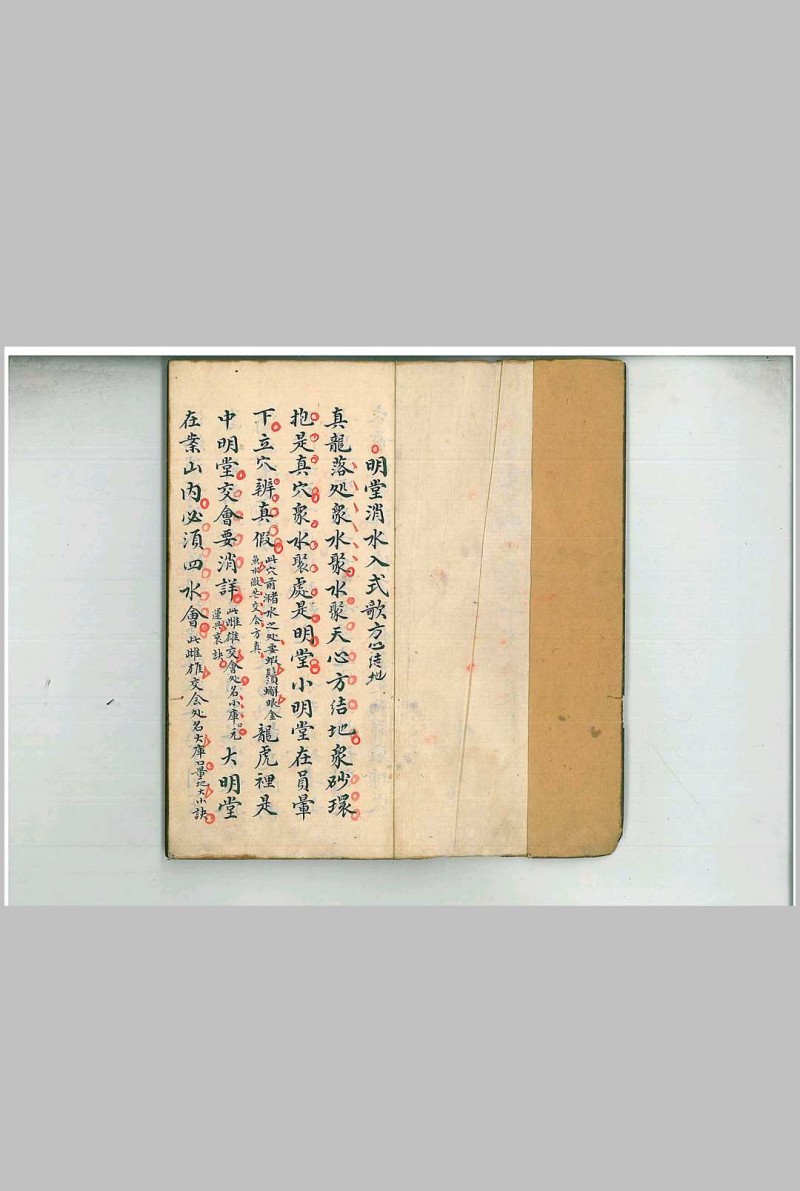 明堂消水入式歌方心結地
真龍落処衆水聚水聚天心方结地衆砂環
抱是真穴衆水聚處是明堂小明堂在員暈
下立穴辨真假此穴前潴水之处要蝦鬚蠏眼金
魚水微茫交会方真龍虎裡是
中明堂交會要消詳此雌雄交會处名小庫元
運興衰訣大明堂
在案山内必須四水會此雌雄交会处名大庫口量地大小訣